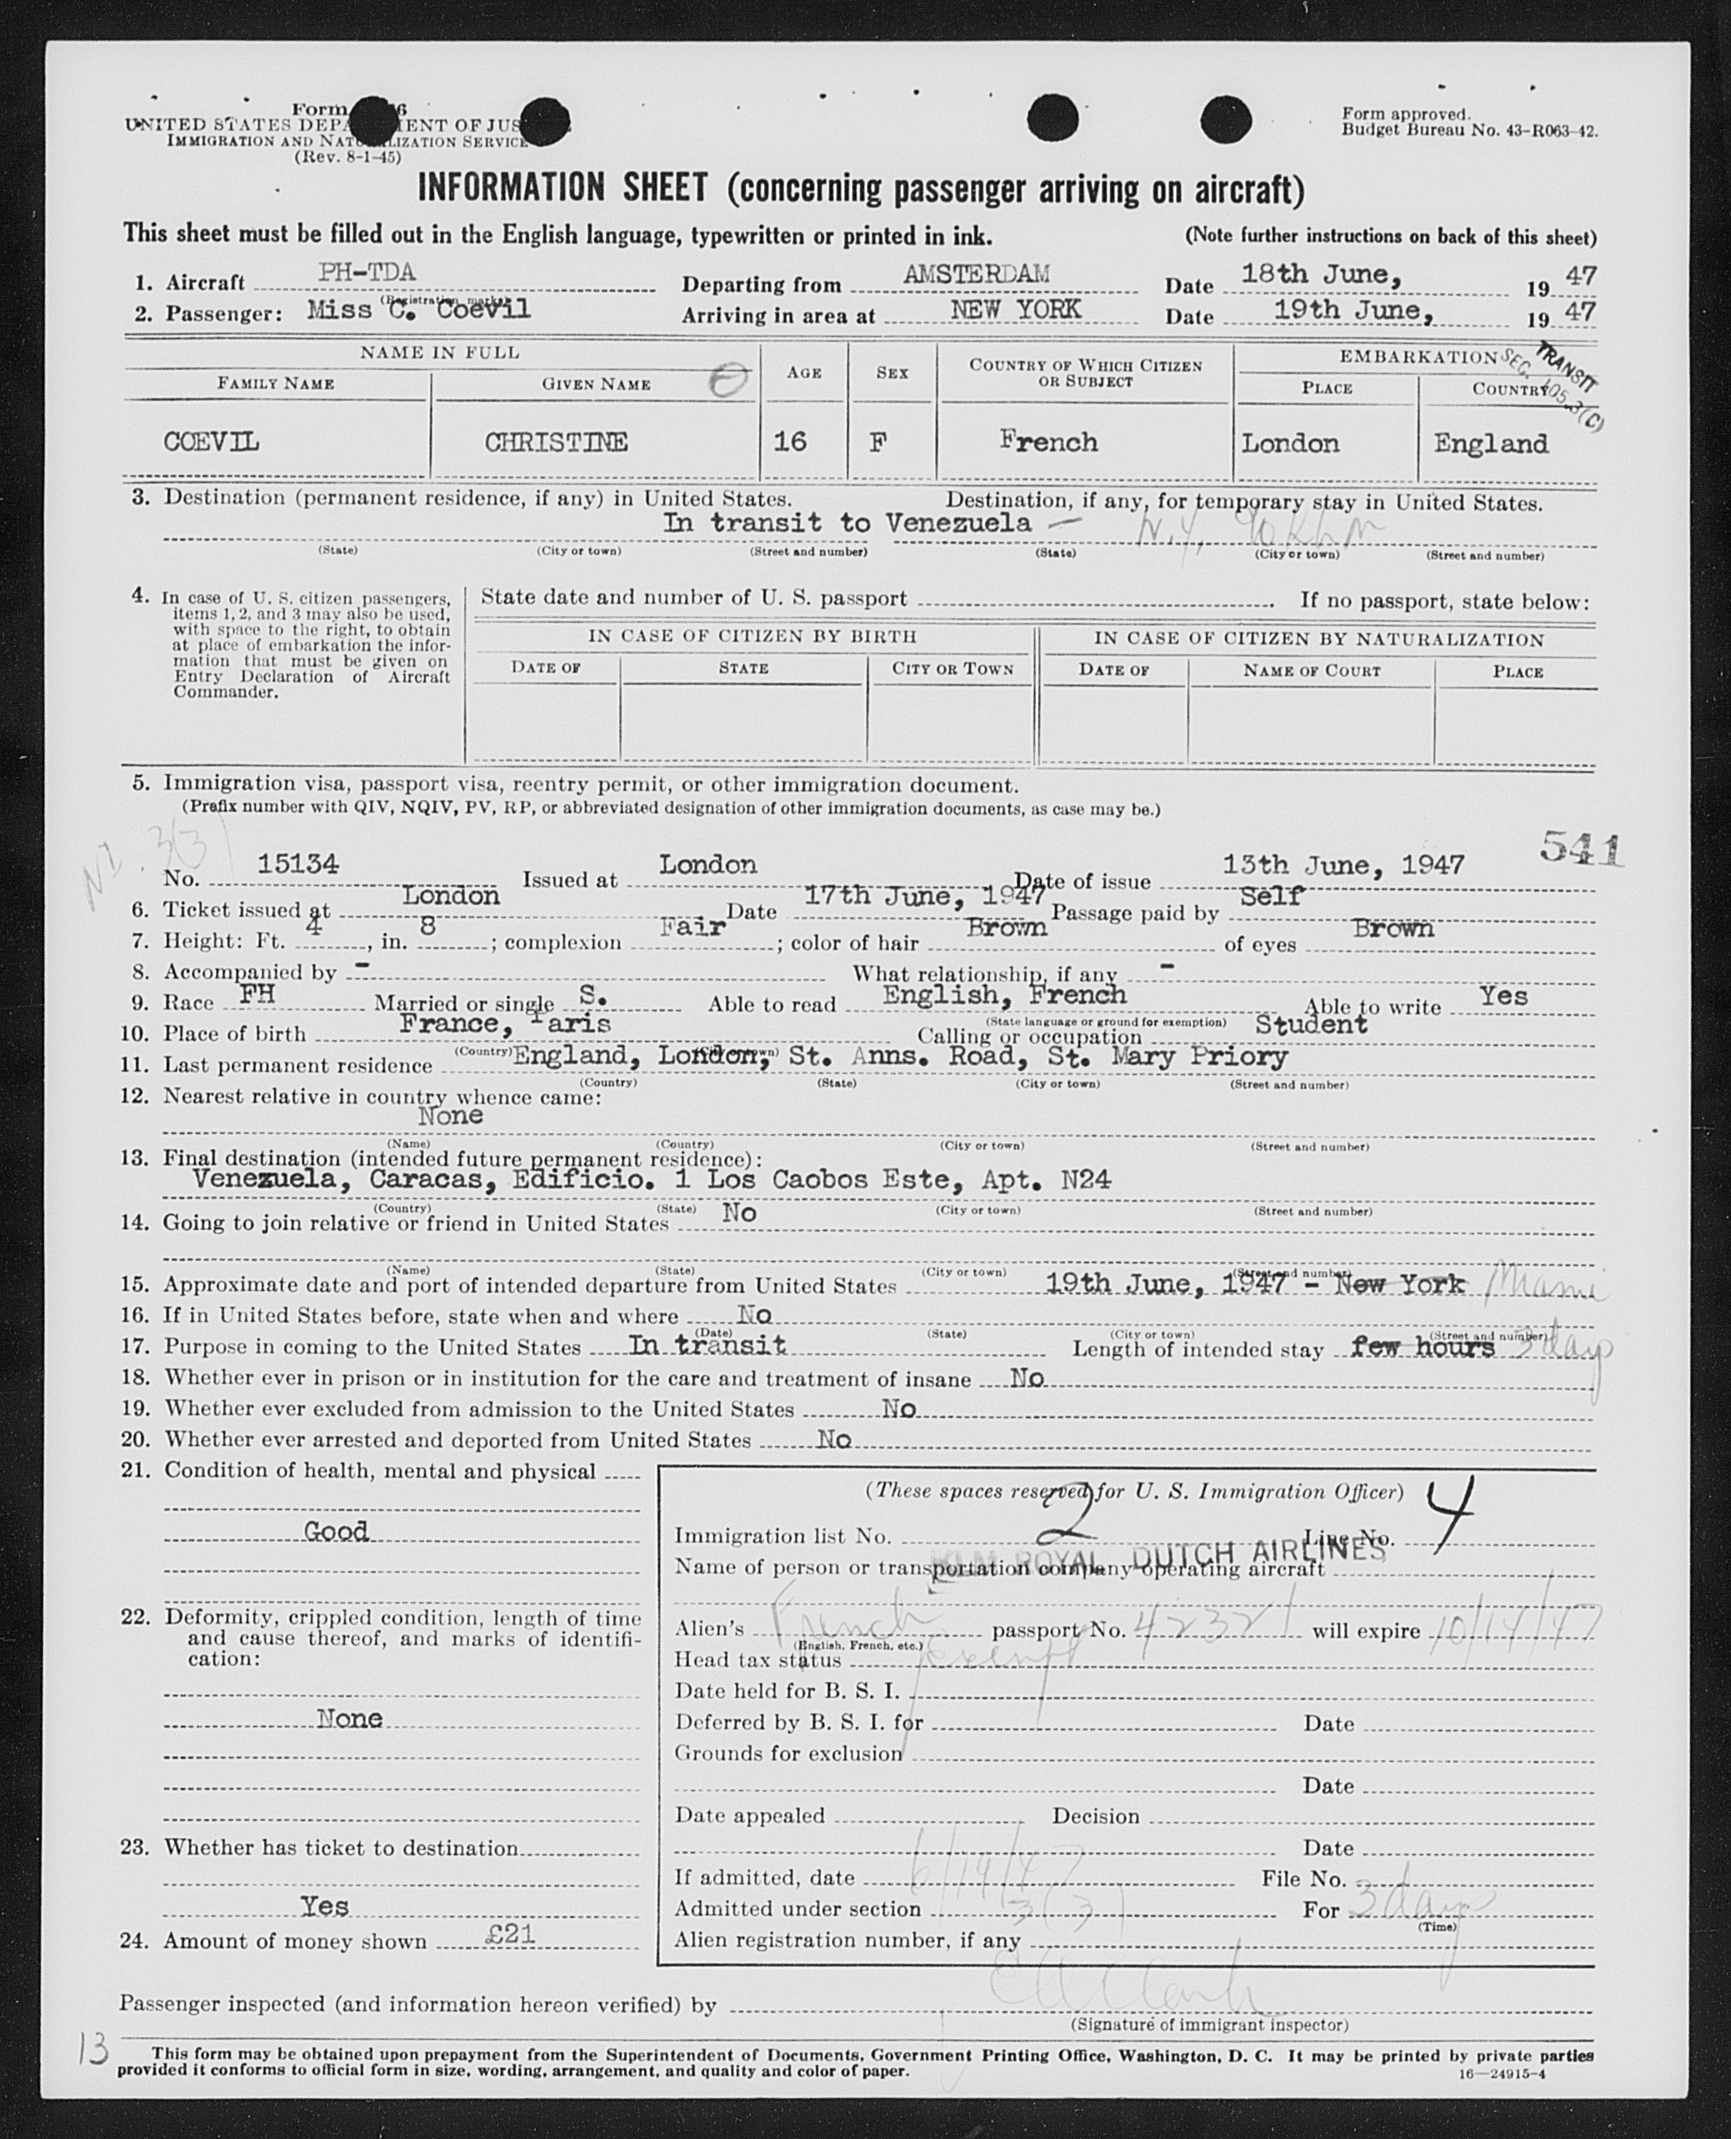 Form 6
UNITED STATES DEPA ENT OF JUS
IMMIGRATION AND NATURALIZATION SERVICE
(Rev. 8-1-45)
Form approved.
Budget Bureau No. 43-R063-42.
INFORMATION SHEET (concerning passenger arriving on aircraft)
This sheet must be filled out in the English language, typewritten or printed in ink. (Note further instructions on back of this sheet)
1. Aircraft PH-TDA Departing from AMSTERDAM Date 18th June, 1947
(Registration marks)
2. Passenger: Miss C. Coevil Arriving in area at NEW YORK Date 19th June, 1947
NAME IN FULL AGE SEX COUNTRY OF WHICH CITIZEN OR SUBJECT EMBARKATION
TRANSIT
SEC. 105.3(C)
FAMILY NAME GIVEN NAME PLACE COUNTRY
COEVIL CHRISTINE 16 F French London England
3. Destination (permanent residence, if any) in United States. Destination, if any, for temporary stay in United States.
In transit to Venezuela — N.Y.
(State) (City or town) (Street and number) (State) (City or town) (Street and number)
4. In case of U. S. citizen passengers,
items 1, 2, and 3 may also be used,
with space to the right, to obtain
at place of embarkation the infor-
mation that must be given on
Entry Declaration of Aircraft
Commander.
State date and number of U. S. passport . If no passport, state below:
IN CASE OF CITIZEN BY BIRTH IN CASE OF CITIZEN BY NATURALIZATION
DATE OF STATE CITY OR TOWN DATE OF NAME OF COURT PLACE
5. Immigration visa, passport visa, reentry permit, or other immigration document.
(Prefix number with QIV, NQIV, PV, RP, or abbreviated designation of other immigration documents, as case may be.)
3(3)
541
No. 15134 Issued at London Date of issue 13th June, 1947
6. Ticket issued at London Date 17th June, 1947 Passage paid by Self
7. Height: Ft. 4, in. 8; complexion Fair; color of hair Brown of eyes Brown
8. Accompanied by - What relationship, if any -
9. Race FH Married or single S. Able to read English, French Able to write Yes
(State language or ground for exemption)
10. Place of birth France, Paris Calling or occupation Student
(Country) (City or town)
11. Last permanent residence England, London, St. Anns. Road, St. Mary Priory
(Country) (State) (City or town) (Street and number)
12. Nearest relative in country whence came:
None
(Name) (Country) (City or town) (Street and number)
13. Final destination (intended future permanent residence):
Venezuela, Caracas, Edificio. 1 Los Caobos Este, Apt. N24
(Country) (State) (City or town) (Street and number)
14. Going to join relative or friend in United States No
(Name) (State) (City or town) (Street and number)
15. Approximate date and port of intended departure from United States 19th June, 1947 - New York Miami
16. If in United States before, state when and where No
(Date) (State) (City or town) (Street and number)
17. Purpose in coming to the United States In transit Length of intended stay few hours 3 days
18. Whether ever in prison or in institution for the care and treatment of insane No
19. Whether ever excluded from admission to the United States No
20. Whether ever arrested and deported from United States No
21. Condition of health, mental and physical
Good
22. Deformity, crippled condition, length of time
and cause thereof, and marks of identifi-
cation:
None
23. Whether has ticket to destination
Yes
24. Amount of money shown £21
(These spaces reserved for U. S. Immigration Officer)
Immigration list No. 2 Line No. 4
KLM ROYAL DUTCH AIRLINES
Name of person or transportation company operating aircraft
Alien's French passport No. 42321 will expire 10/14/47
(English, French, etc.)
Head tax status Exempt
Date held for B. S. I.
Deferred by B. S. I. for Date
Grounds for exclusion
Date
Date appealed Decision
Date
If admitted, date 6/19/47 File No.
Admitted under section 3(3) For 3 days
(Time)
Alien registration number, if any
Passenger inspected (and information hereon verified) by
(Signature of immigrant inspector)
13
This form may be obtained upon prepayment from the Superintendent of Documents, Government Printing Office, Washington, D. C. It may be printed by private parties
provided it conforms to official form in size, wording, arrangement, and quality and color of paper.
16—24915-4